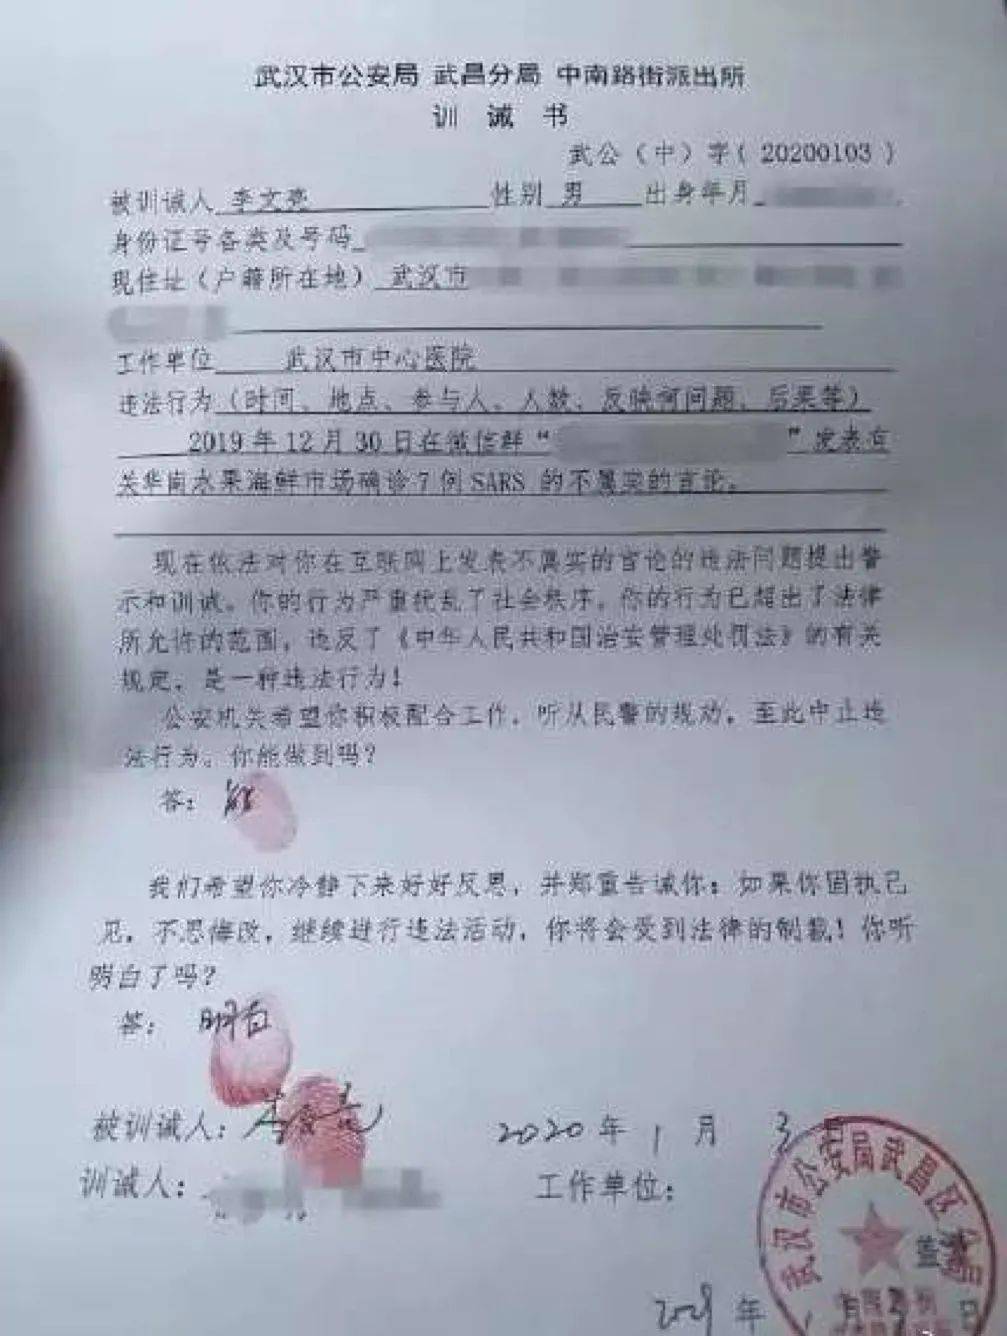 武汉市公安局 武昌分局 中南路街派出所
训 诫 书
武公（中）字（20200103）
被训诫人 李文亮 性别 男 出身年月
身份证号各类及号码
现住址（户籍所在地） 武汉市
工作单位 武汉市中心医院
违法行为（时间、地点、参与人、人数、反映何问题、后果等）
2019年12月30日在微信群“ ”发表有
关华南水果海鲜市场确诊7例SARS的不属实的言论。
现在依法对你在互联网上发表不属实的言论的违法问题提出警
示和训诫。你的行为严重扰乱了社会秩序。你的行为已超出了法律
所允许的范围，违反了《中华人民共和国治安管理处罚法》的有关
规定，是一种违法行为！
公安机关希望你积极配合工作，听从民警的规劝，至此中止违
法行为。你能做到吗？
答：能
我们希望你冷静下来好好反思，并郑重告诫你：如果你固执己
见，不思悔改，继续进行违法活动，你将会受到法律的制裁！你听
明白了吗？
答：明白
被训诫人：李文亮 2020年1月3日
训诫人： 工作单位：
武汉市公安局武昌区分局
盖
年1月3日